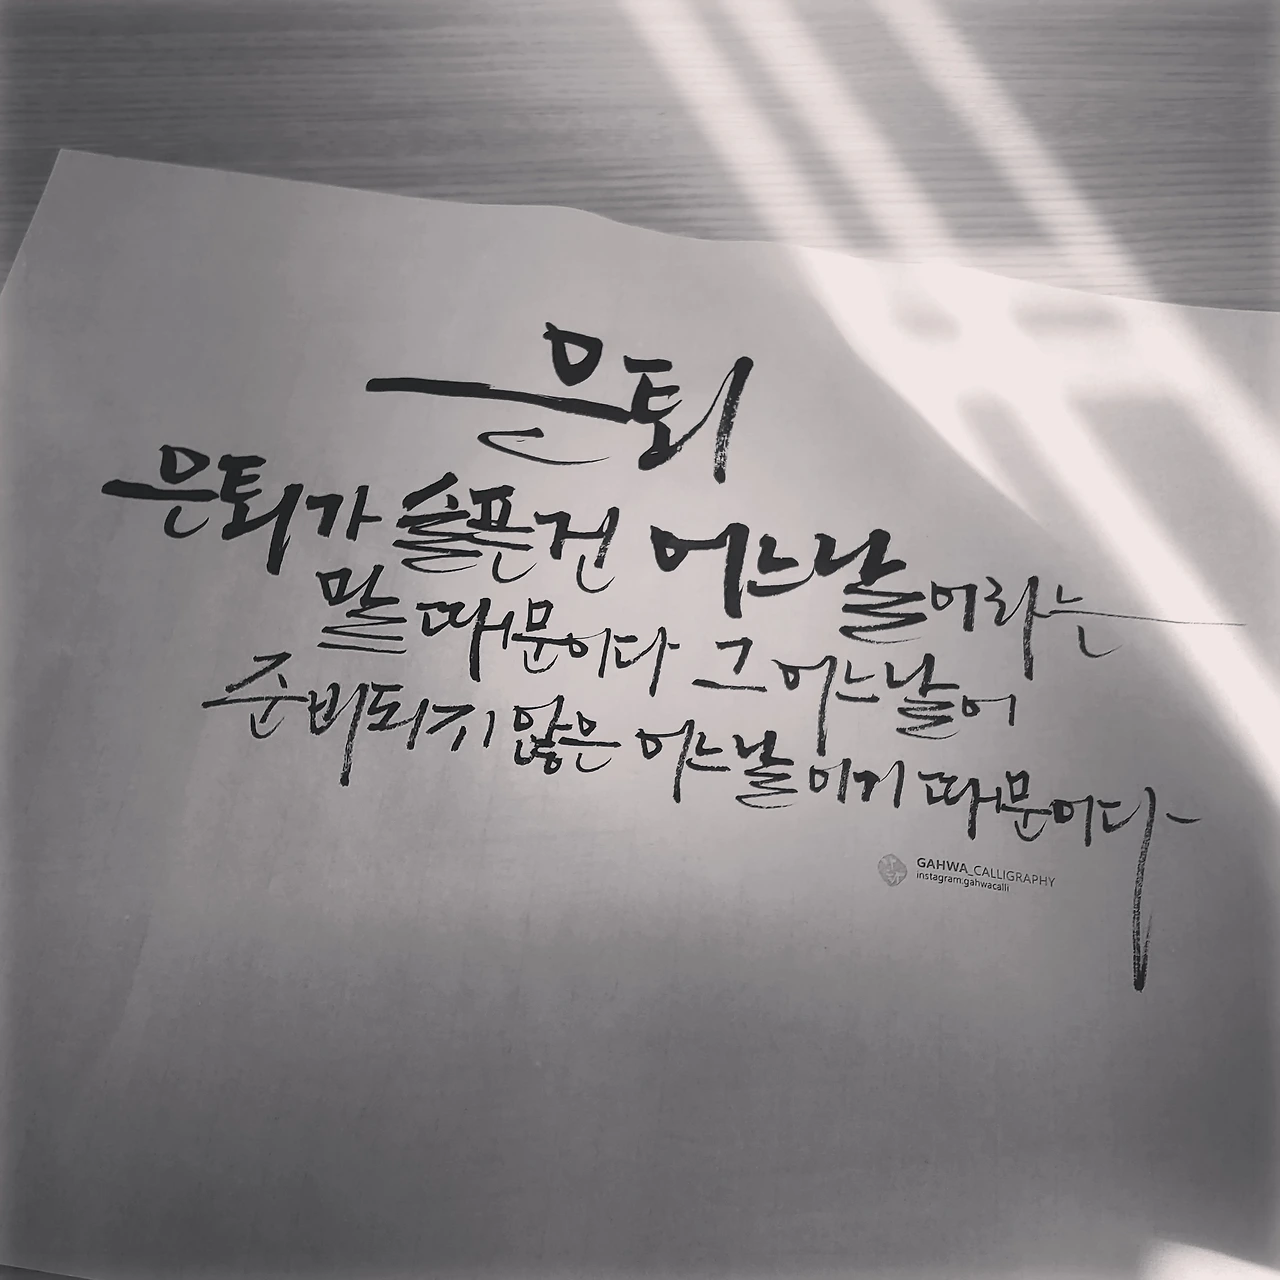 은퇴
은퇴가 슬픈건 어느날이라는
말 때문이다 그 어느날이
준비되지 않은 어느날이기 때문이다
GAHWA_CALLIGRAPHY
instagram:gahwacalli